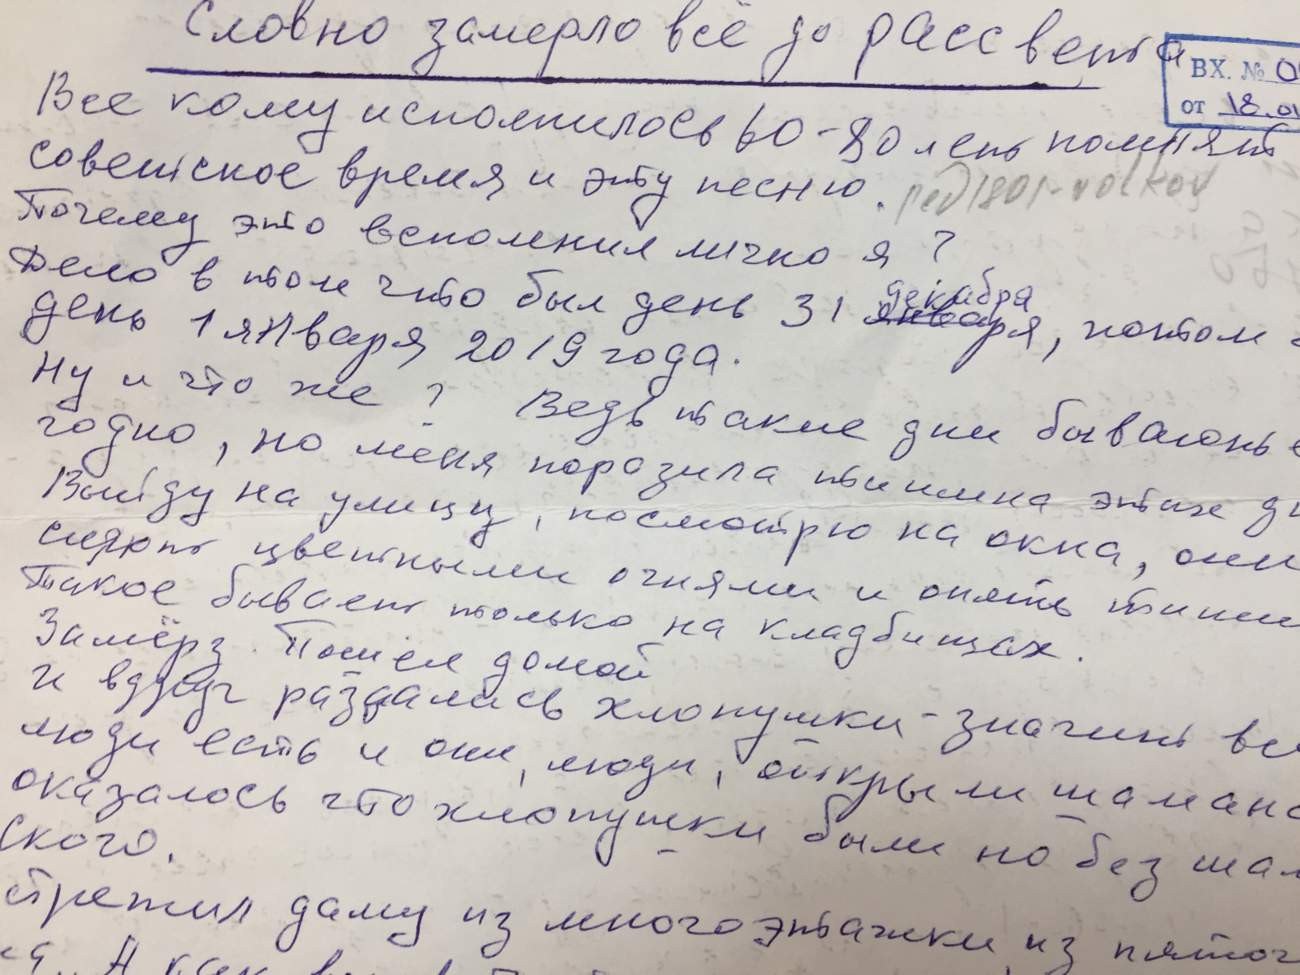 Словно замерло всё до рассвета
ВХ. № 0
от 18.01
Все кому исполнилось 60-80 лет помнят
советское время и эту песню.
ped1801-volkov
Почему это вспомнил лично я?
Дело в том что был день 31 декабря, потом
день 1 января 2019 года.
Ну и что же? Ведь такие дни бывают
годно, но меня поразила тишина этих
Выйду на улицу, посмотрю на окна, они
сияют цветными огнями и опять
Такое бывает только на кладбищах.
Замёрз. Пошёл домой
И вдруг раздались хлопушки-значит
люди есть и они, люди, открыли
оказалось что хлопушки были но без
ского.
стретил даму из многоэтажки, из
А как